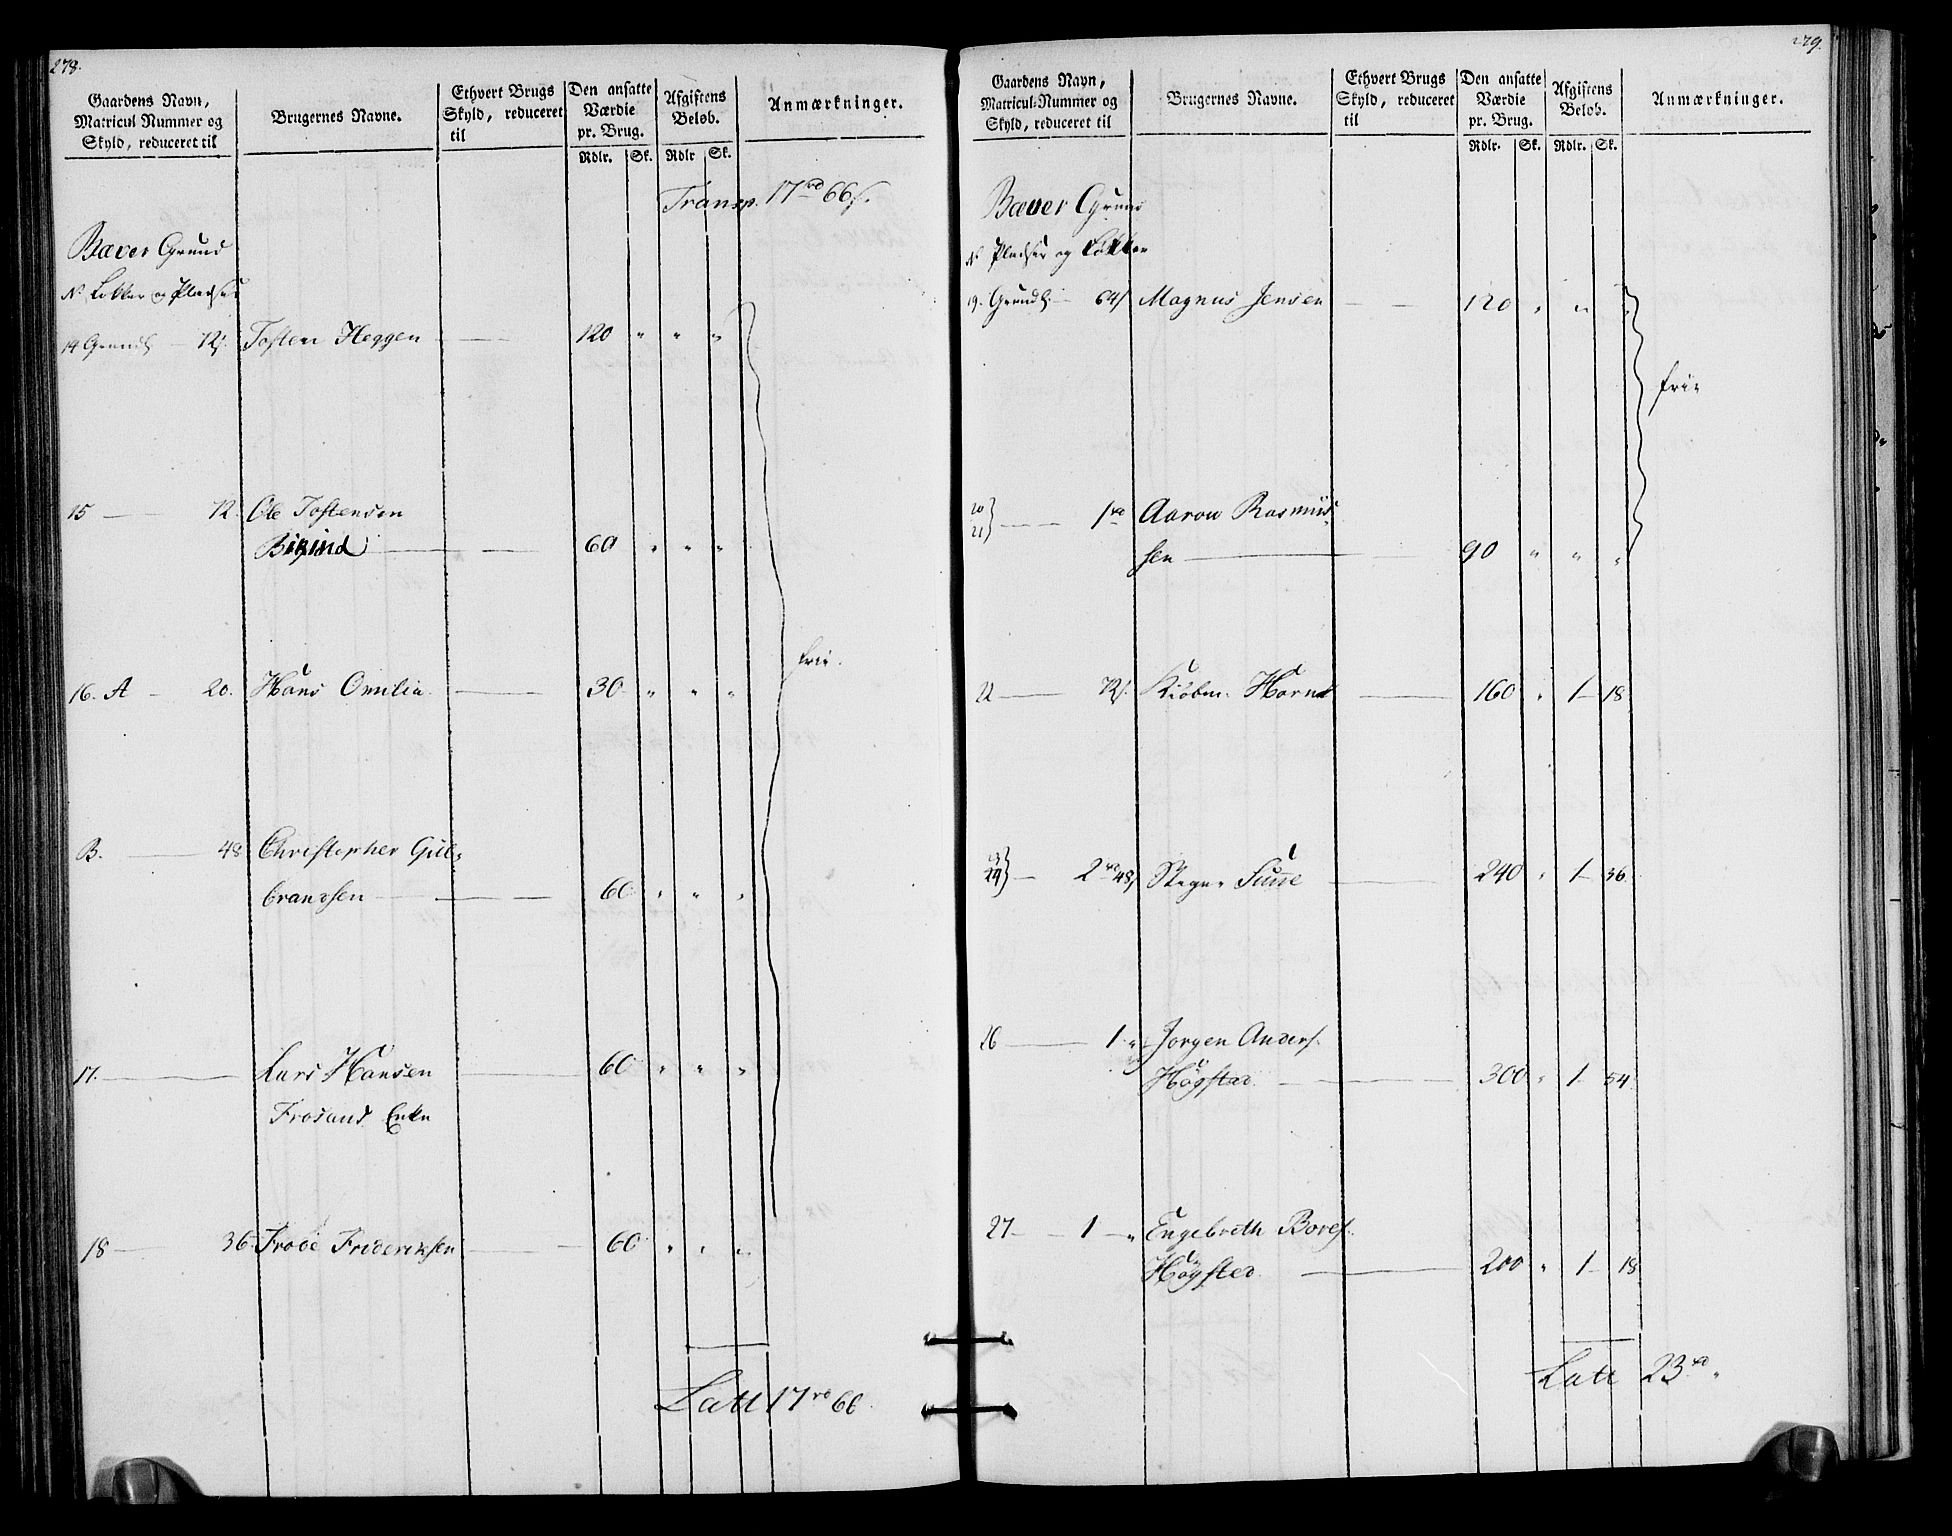 278.
Gaardens Navn,
Matricul Nummer og
Skyld, reduceret til
Brugernes Navne.
Ethvert Brugs
Skyld, reduceret
til
Den ansatte
Værdie
pr. Brug.
Rdlr. Sk.
Afgiftens
Beløb.
Rdlr Sk.
Anmærkninger.
Transp. 17 rd 66 s.
Bæver Grund
No Løkker og Pladser
14 Grundl 72 s. Tosten Heggen 120 " " "
15 72. Ole Tostensen
60 " " "
16. A 20. Hans Onilia 30 " " "
frie.
B. 48 Christopher Gul-
brandsen 60 " " "
17. Lars Hansen 60 " " "
Frosand Enke
18 36 Frode Frideriksen 60 " " "
Latt 17 rd 66.
279.
Gaardens Navn,
Matricul-Nummer og
Skyld, reduceret til
Brugernes Navne.
Ethvert Brugs
Skyld, reduceret
til
Den ansatte
Værdie
pr. Brug.
Rdlr. Sk.
Afgiftens
Beløb.
Rdlr. Sk.
Anmærkninger.
Bæver Grund
No Pladser og Løkker
19. Grundl 64 s Magnus Jensen 120 " " "
frie
20
21 } 1 rd Aaron Rasmus-
sen 90 " " "
22 72 s. Kiøbm. Horne 160 " 1 18
23
24 } 2 rd 48 s 240 " 1 36.
26 1 " Jørgen Anders.
Høgstad 300 " 1 54
27 1 " Engebreth Bores.
Høgstad 200 " 1 18
Latt 23 rd "